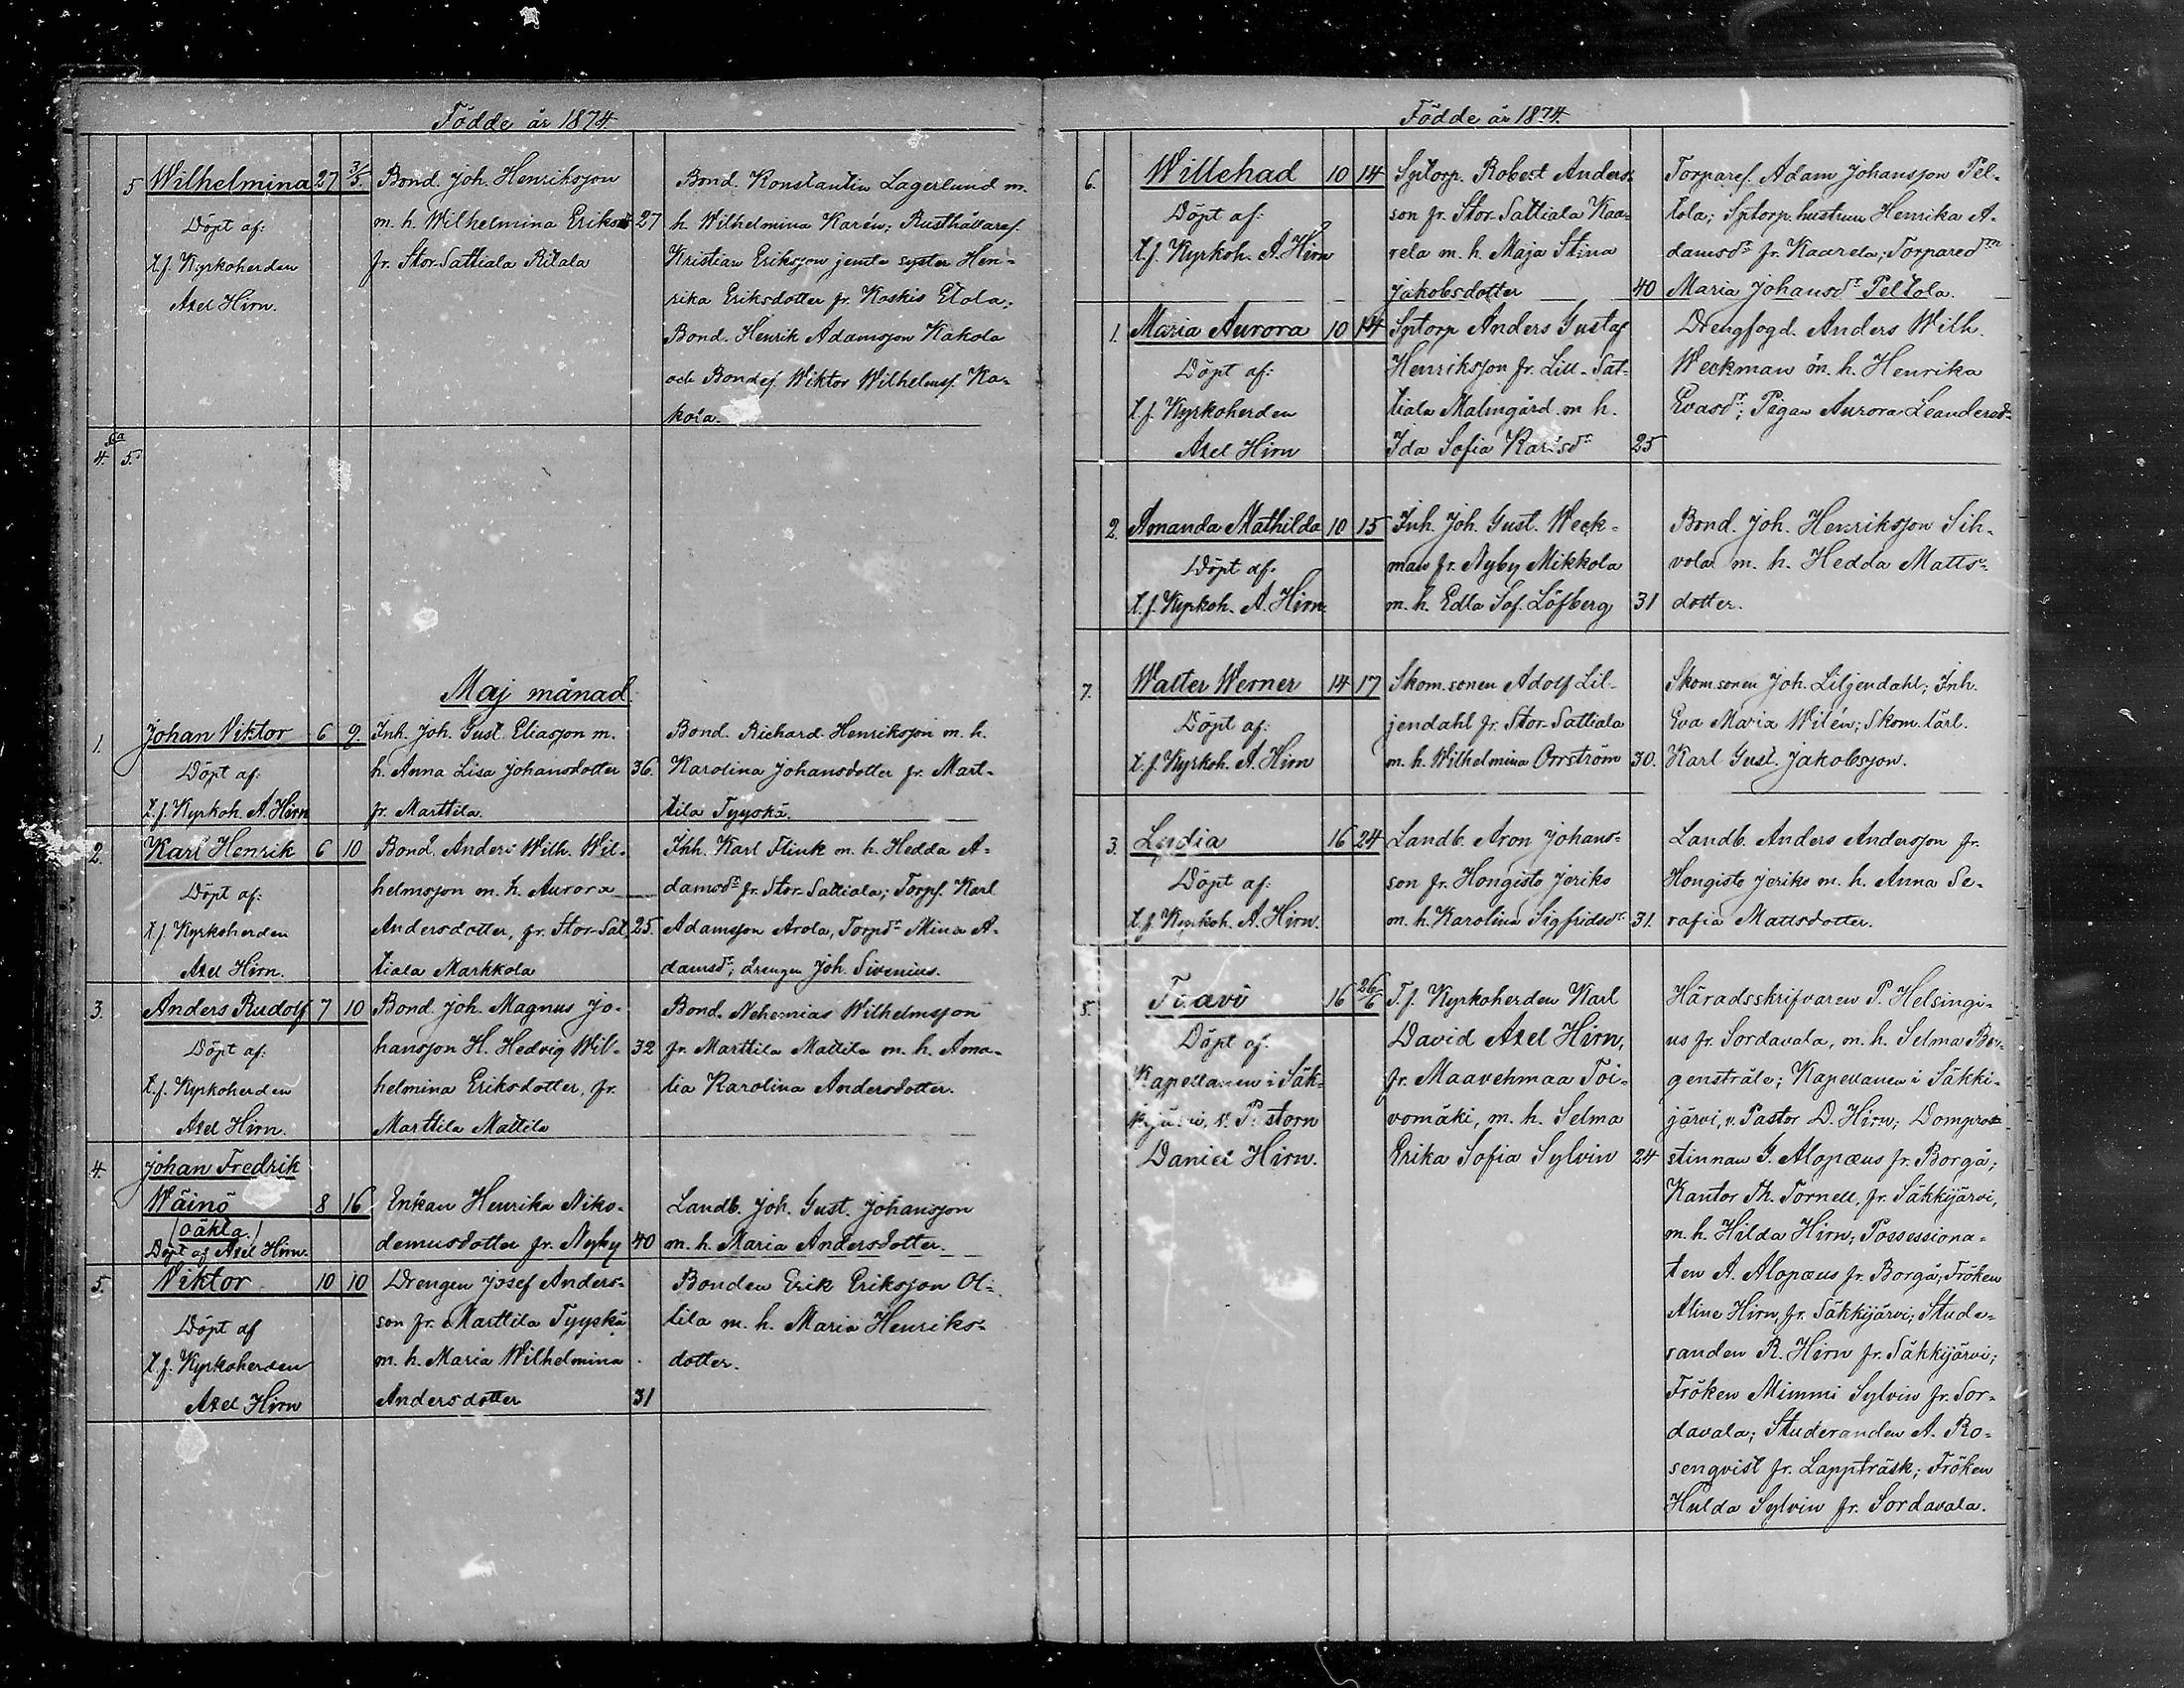 Födde år 1874.
5 Wilhelmina 27 3/5. Bond. Joh. Henriksson Bond. Konstantin Lagerlund m.
Döpt af: m. h. Wilhelmina Eriksd 27 h. Wilhelmina Karén; Rusthållaref.
t.f. Kyrkoherden fr. Stor-Sattiala Ritala Kristian Eriksson jemte syster Hen-
Axel Hirn. rika Eriksdotter fr. Koskis Etola;
Bond. Henrik Adamsson Kakola
och Bondes. Wiktor Wilhelmss. Ka-
kola.
4. 5.
Maj månad.
1. Johan Viktor 6 9. Inh. Joh. Gust. Eliasson m. Bond. Richard Henriksson m. h.
Döpt af: h. Anna Lisa Johansdotter 36. Karolina Johansdotter fr. Mart-
t.f. Kyrkoh. A. Hirn fr. Marttila. tila Tyyskä.
2. Karl Henrik 6 10 Bond. Anders Wilh. Wil- Inh. Karl Flink m. h. Hedda A-
Döpt af: helmsson m. h. Aurora damsdr fr. Stor-Sattiala; Torps. Karl
t.f. Kyrkoherden Andersdotter, fr. Stor-Sat 25. Adamsson Arola, Torpdr Mina A-
Axel Hirn. tiala Markkola damsdr; drengen Joh. Sivenius.
3. Anders Rudolf 7 10 Bond. Joh. Magnus Jo- Bond. Nehemias Wilhelmsson
Döpt af: hansson H. Hedvig Wil- 32 fr. Marttila Mattila m. h. Ama-
t.f. Kyrkoherden helmina Eriksdotter, fr. lia Karolina Andersdotter.
Axel Hirn. Marttila Mattila
4. Johan Fredrik
Wäinö 8 16 Enkan Henrika Niko- Landb. Joh. Gust. Johansson
(oäkta.) demusdotter fr. Nyby 40 m. h. Maria Andersdotter.
Döpt af Axel Hirn.
5. Viktor 10 10 Drengen Josef Anders- Bonden Erik Eriksson Ol-
Döpt af son fr. Marttila Tyyskä tila m. h. Maria Henriks-
t.f. Kyrkoherden m. h. Maria Wilhelmina dotter.
Axel Hirn Andersdotter 31
Födde år 1874.
6. Willehad 10 14 Sptorp. Robert Anders- Torpares. Adam Johansson Pel-
Döpt af: son fr. Stor-Sattiala Kaa- tola; Sptorp. hustrun Henrika A-
t.f. Kyrkoh. A. Hirn rela m. h. Maja Stina damsdr fr. Kaarela; Torpared
Jakobsdotter 40 Maria Johansdr Peltola.
1. Maria Aurora 10 14 Sptorp Anders Gustaf Drengfogd. Anders Wilh.
Döpt af: Henriksson fr. Lill-Sat- Weckman m. h. Henrika
t.f. Kyrkoherden tiala Malmgård m h. Evasdr; Pigan Aurora Leandersd
Axel Hirn Ida Sofia Karlsdr 25
2. Amanda Mathilda 10 15 Inh. Joh. Gust. Weck- Bond. Joh. Henriksson Sih-
Döpt af. man fr. Nyby Mikkola vola m. h. Hedda Matts-
t.f. Kyrkoh. A. Hirn. m. h. Edla Sof. Löfberg 31 dotter.
7. Walter Werner 14 17 Skom.sonen Adolf Lil- Skom.sonen Joh. Liljendahl; Inh.
Döpt af: jendahl fr. Stor-Sattiala Eva Maria Wilén; Skom. lärl.
t.f. Kyrkoh. A. Hirn m. h. Wilhelmina Orrström 30. Karl Gust. Jakobsson.
3. Lydia 16 24 Landb. Aron Johans- Landb. Anders Andersson fr.
Döpt af: son fr. Hongisto Jeriko Hongisto Jeriko m. h. Anna Se-
t.f. Kyrkoh. A. Hirn. m. h. Karolina Sigfridsdr 31. rafia Mattsdotter.
5. Taavi 16 26/6 T.f. Kyrkoherden Karl Häradsskrifvaren P. Helsingi-
Döpt af: David Axel Hirn, us fr. Sordavala, m. h. Selma Ber-
Kapellanen i Säk- fr. Maavehmaa Toi- genstråle; Kapellanen i Säkki-
kijärvi, v. Pastorn vomäki, m. h. Selma järvi, v. Pastor D. Hirn; Dompro-
Daniel Hirn. Erika Sofia Sylvin 24 stinnan G. Alopæus fr. Borgå;
Kantor Th. Tornell, fr. Säkkijärvi,
m. h. Hilda Hirn; Possessiona-
ten A. Alopæus fr. Borgå; Fröken
Aline Hirn, fr. Säkkijärvi; Stude-
randen R. Hirn fr. Säkkijärvi;
Fröken Mimmi Sylvin fr. Sor-
davala; Studeranden A. Ro-
senqvist fr. Lappträsk; Fröken
Hulda Sylvin fr. Sordavala.